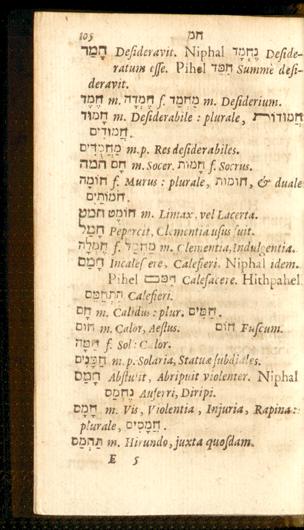 105 חמ
חָמַד Desideravit. Niphal נֶחְמַד Deside-
ratum esse. Pihel חִמֵּד Summè desi-
deravit.
חֶמֶד m. חֶמְדָּה f. מַחְמָד m. Desiderium.
חָמוּד m. Desiderabile : plurale, חֲמוּדוֹת
חֲמוּדִים
מַחֲמַדִּים m.p. Res desiderabiles.
חמה חָם m. Socer. חָמוֹת f. Socrus.
חוֹמָה f. Murus : plurale, חוֹמוֹת, & duale
חוֹמָתַיִם
חמט חוֹמֶט m. Limax, vel Lacerta.
חָמַל Pepercit, Clementia usus fuit.
חֶמְלָה f. מַחְמָל m. Clementia, Indulgentia.
חָמַם Incalescere, Calefieri. Niphal idem.
Pihel חִמֵּם Calefacere. Hithpahel
הִתְחַמֵּם Calefieri.
חָם m. Calidus : plur. חַמִּים.
חוֹם m. Calor, Aestus. חוּם Fuscum.
חַמָּה f. Sol : Calor.
חַמָּנִים m.p. Solaria, Statuae subdiales.
חָמַס Abstulit, Abripuit violenter. Niphal
נֶחְמַס Auferri, Diripi.
חָמָס m. Vis, Violentia, Injuria, Rapina :
plurale, חֲמָסִים.
תַּחְמָס m. Hirundo, juxta quosdam.
E 5